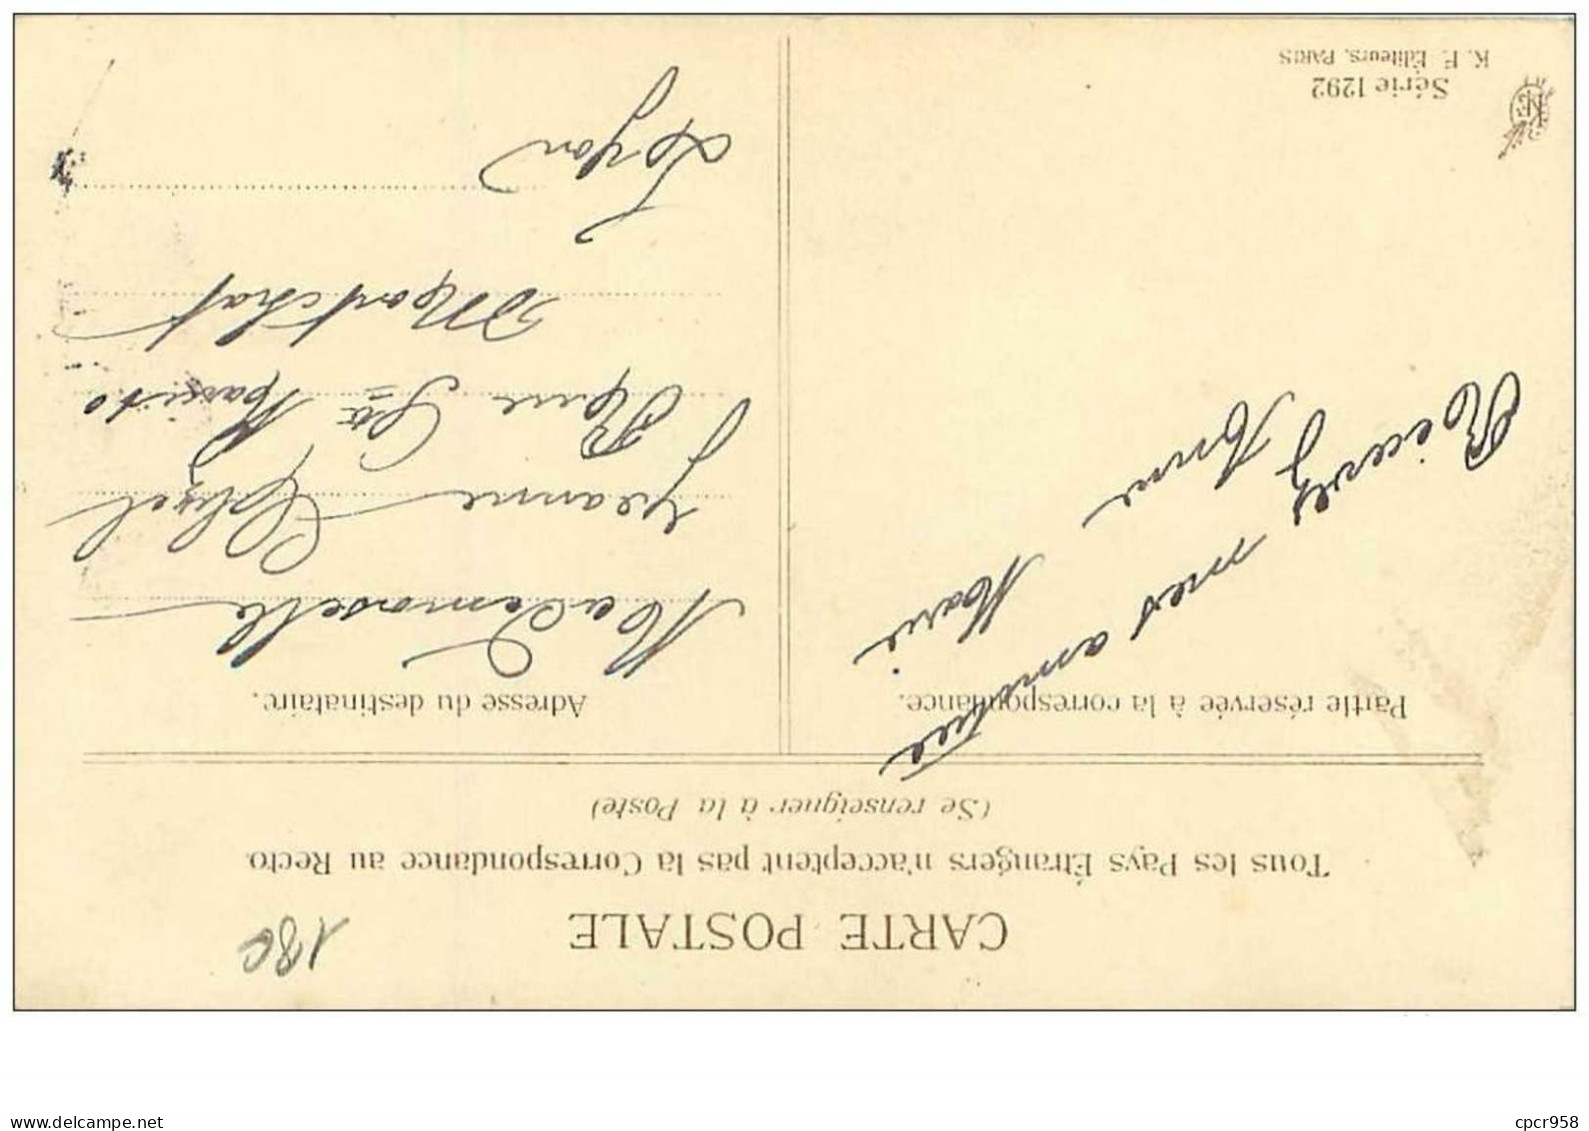 CARTE POSTALE
180
Tous les Pays Étrangers n'acceptent pas la Correspondance au Recto.
(Se renseigner à la Poste)
Partie réservée à la correspondance.
Recevez mes amitié
Anne Marie
Série 1292
K. F. Éditeurs, PARIS
Adresse du destinataire.
Mademoiselle
Jeanne
Rue
Montchat
Lyon
www.delcampe.net
cpcr958